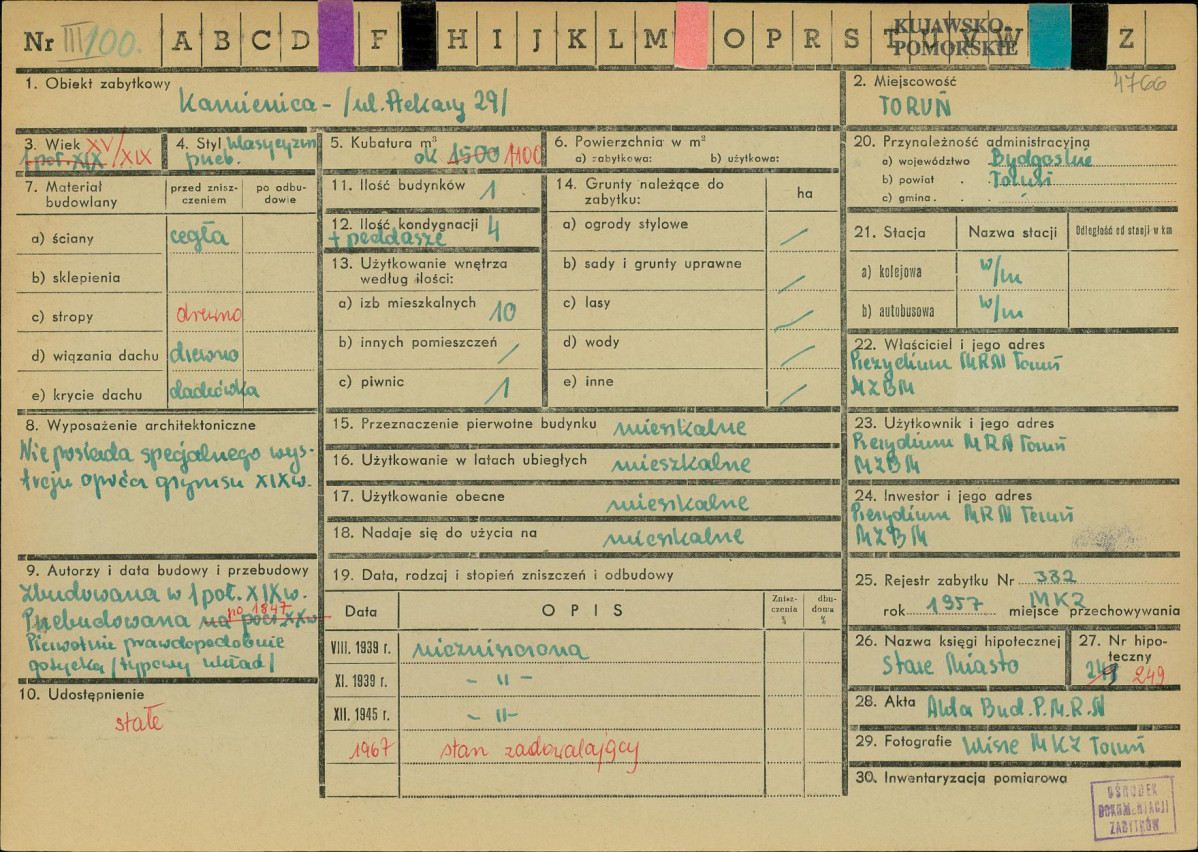 Nr III/100. A B C D F H I J K L M O P R S T U V W Z
KUJAWSKO-
POMORSKIE
4766
1. Obiekt zabytkowy Kamienica - /ul. Piekary 29/
2. Miejscowość
TORUŃ
3. Wiek XV/XIX
1 poł. XIX
4. Styl klasycyzm
przeb.
5. Kubatura m³
ok 1500 1100
6. Powierzchnia w m²
a) zabytkowa: b) użytkowa:
7. Materiał budowlany
przed zniszczeniem
po odbudowie
a) ściany cegła
b) sklepienia
c) stropy drewno
d) wiązania dachu drewno
e) krycie dachu dachówka
8. Wyposażenie architektoniczne
Nie posiada specjalnego wys-
troju oprócz gzymsu XIX w.
9. Autorzy i data budowy i przebudowy
Zbudowana w 1 poł. XIX w.
Przebudowana na pocz XX w. po 1847
Pierwotnie prawdopodobnie
gotycka /typowy układ/
10. Udostępnienie
stałe
11. Ilość budynków 1
12. Ilość kondygnacji 4
+ poddasze
13. Użytkowanie wnętrza
według ilości:
a) izb mieszkalnych 10
b) innych pomieszczeń /
c) piwnic 1
14. Grunty należące do
zabytku:
ha
a) ogrody stylowe /
b) sady i grunty uprawne /
c) lasy /
d) wody /
e) inne /
15. Przeznaczenie pierwotne budynku mieszkalne
16. Użytkowanie w latach ubiegłych mieszkalne
17. Użytkowanie obecne mieszkalne
18. Nadaje się do użycia na mieszkalne
19. Data, rodzaj i stopień zniszczeń i odbudowy
Data OPIS Znisz-
czenia
% dbu-
dowa
%
VIII. 1939 r. niezniszczona
XI. 1939 r. - " -
XII. 1945 r. - " -
1967 stan zadowalający
20. Przynależność administracyjna
a) województwo Bydgoskie
b) powiat . . Toruń
c) gmina . .
21. Stacja Nazwa stacji Odległość od stacji w km
a) kolejowa w/m
b) autobusowa w/m
22. Właściciel i jego adres
Prezydium MRN Toruń
MZBM
23. Użytkownik i jego adres
Prezydium MRN Toruń
MZBM
24. Inwestor i jego adres
Prezydium MRN Toruń
MZBM
25. Rejestr zabytku Nr 332
rok 1957 miejsce przechowywania
MKZ
26. Nazwa księgi hipotecznej
Stare Miasto
27. Nr hipo-
teczny
249 249
28. Akta Akta Bud. P.M.R.N
29. Fotografie klisze MKZ Toruń
30. Inwentaryzacja pomiarowa
OŚRODEK
DOKUMENTACJI
ZABYTKÓW